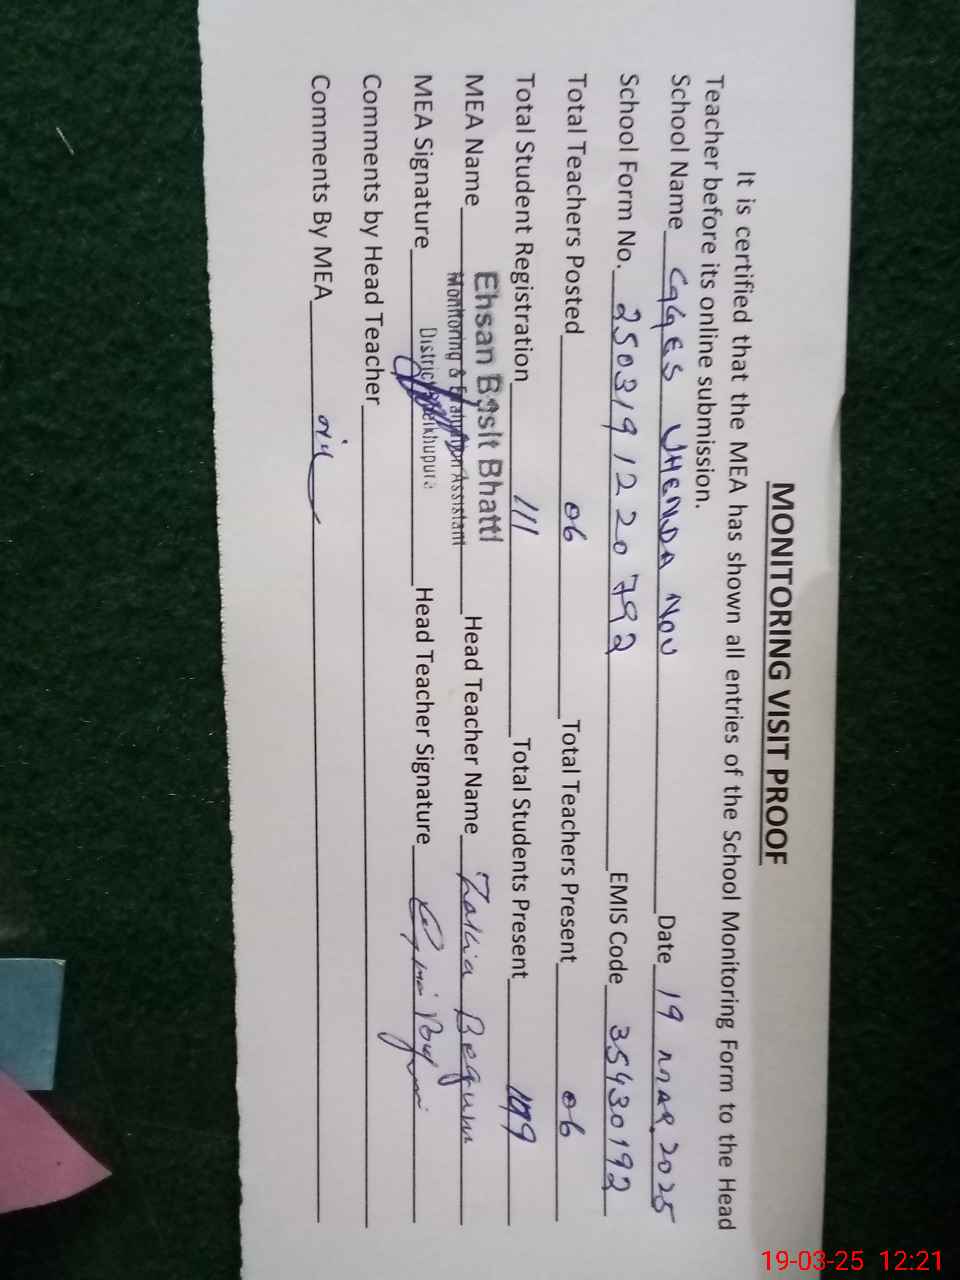 MONITORING VISIT PROOF
It is certified that the MEA has shown all entries of the School Monitoring Form to the Head
Teacher before its online submission.
School Name GGES JHENDA NOU Date 19 MAR 2025
School Form No. 25031912 20792 EMIS Code 35430192
Total Teachers Posted 06 Total Teachers Present 06
Total Student Registration 111 Total Students Present 109
Ehsan Basit Bhatti
MEA Name Head Teacher Name Zakia Begum
Monitoring & Evaluation Assistant
MEA Signature District Sheikhupura Head Teacher Signature
Comments by Head Teacher
Comments By MEA
19-03-25 12:21